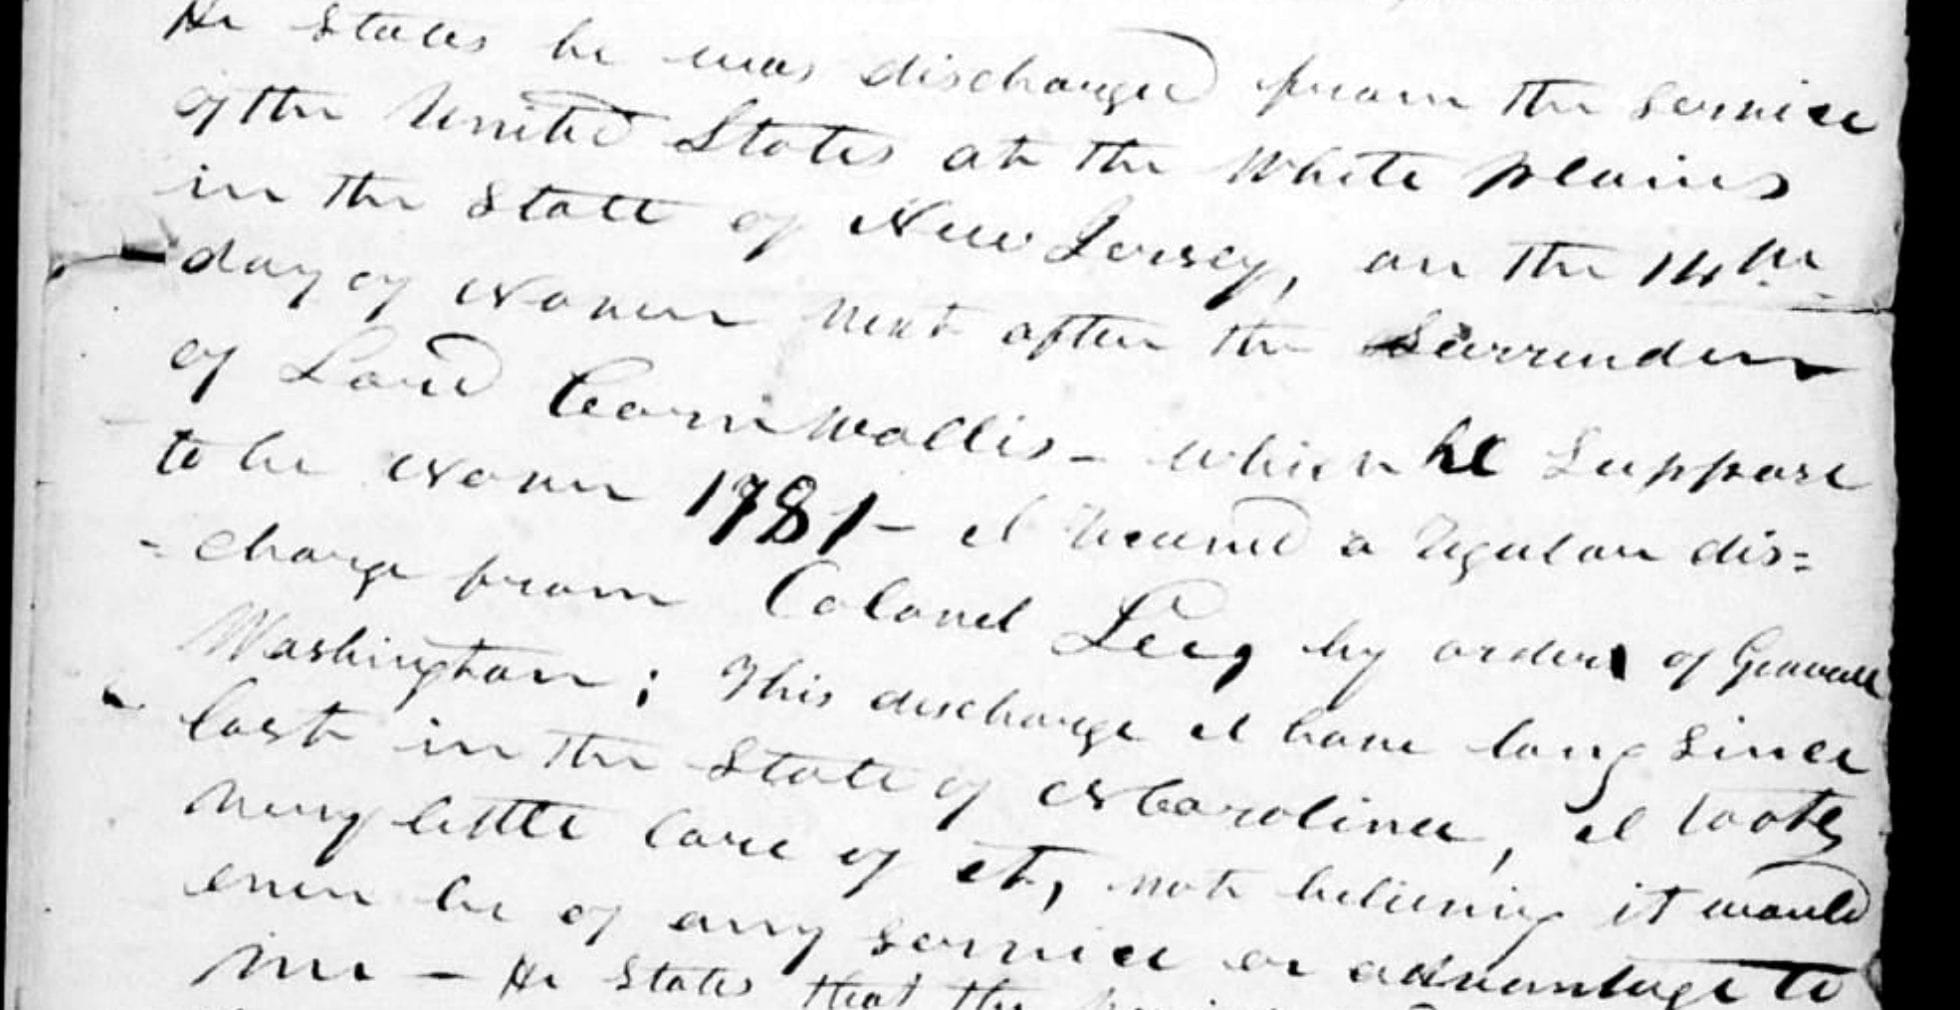 He States he was discharged from the Service
of the United States at the White plains
in the State of New Jersey, on the 14th
day of Novem next after the Surrender
of Lord Cornwallis - which he Suppose
to be Novem 1781 - I received a regular dis=
=charge from Colonel Leeg by order of General
Washington; This discharge I have long Since
lost in the State of N Carolina, I took
very little care of it, not believing it would
ever be of any service or advantage to
me - He States that the